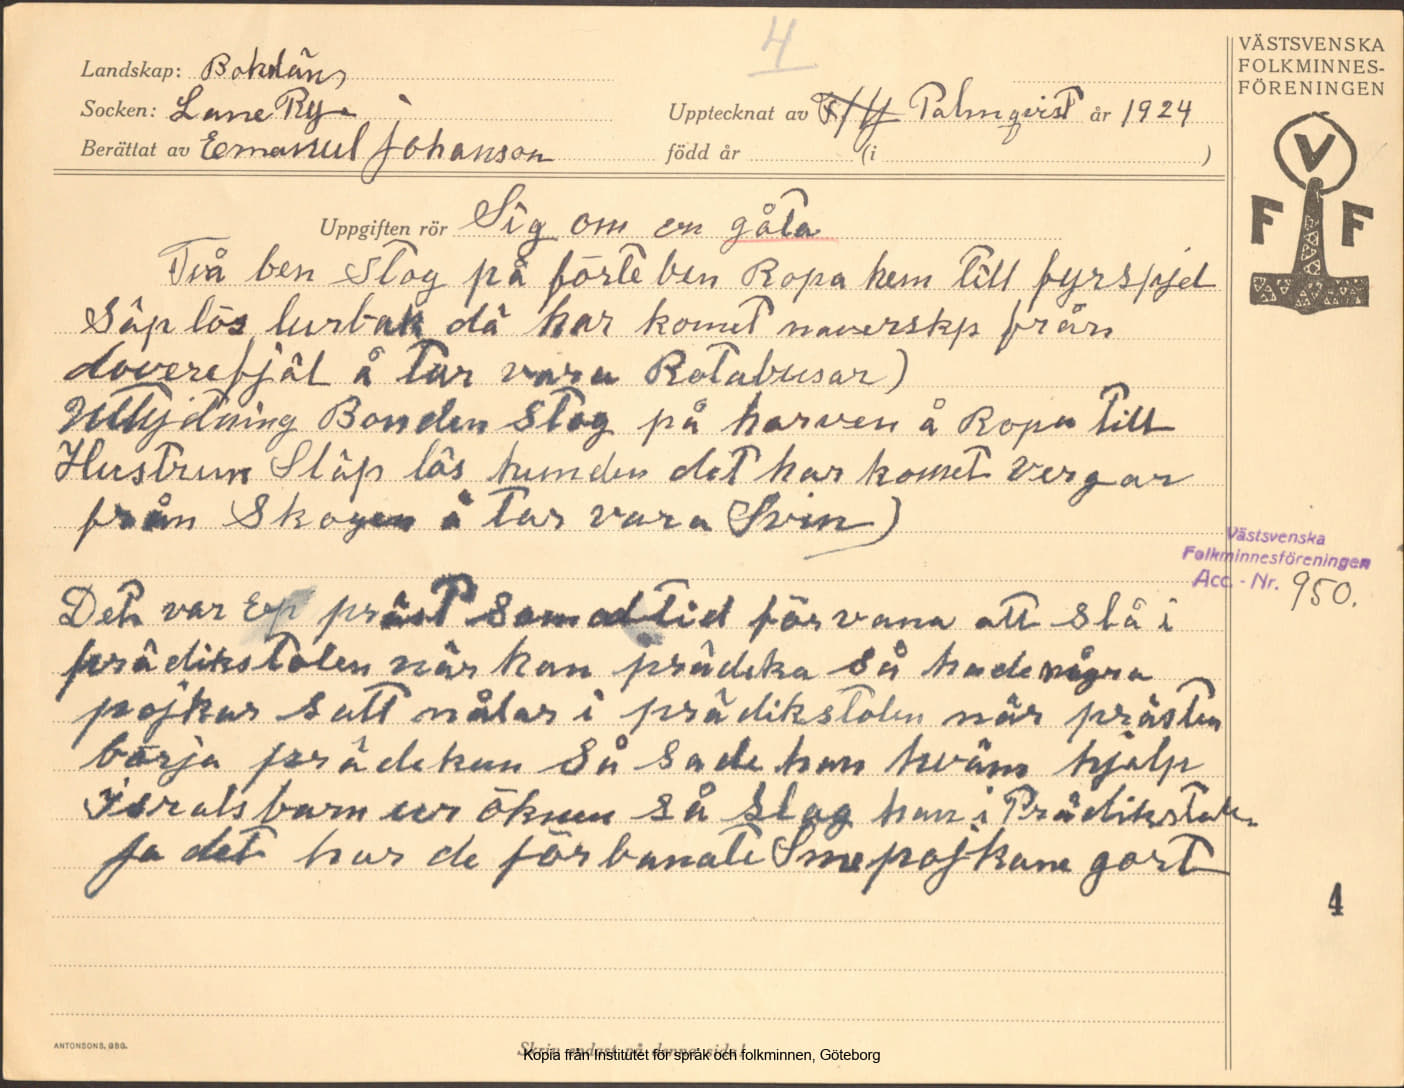 4
VÄSTSVENSKA
FOLKMINNES-
FÖRENINGEN
V
F F
Landskap: Bohdäns
Socken: Lane Ry
Upptecknat av Palmqvist år 1924
Berättat av Emanuel Johanson
född år (i )
Uppgiften rör Sig om en gåta
Två ben stog på förte ben Ropa hem till fyrspjel
Säp lös lurbak då har komet naverskp från
doverefjäl å tar vara Rotabusar)
Uttydning Bonden stog på harven å Ropa till
Hustrun Släp lös hunden det har komet Vergar
från Skogen å tar vara Svin)
Västsvenska
Folkminnesföreningen
Acc. - Nr. 950.
Det var en präst som altid för vana att slå i
prädikstolen när han prädika så hade några
pojkar satt nålar i prädikstolen när prästen
börja prädekan så sade han hväm hjalp
isralsbarn ur öknen så slog han i Prädikstolen
Ja det har de förbanate Smepojkane gort
4
ANTONSONS, GBG.
Skriv endast på denna sida!
Kopia från Institutet för språk och folkminnen, Göteborg